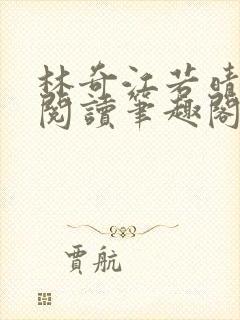 林奇江若晴
閱讀筆趣閣
賈航